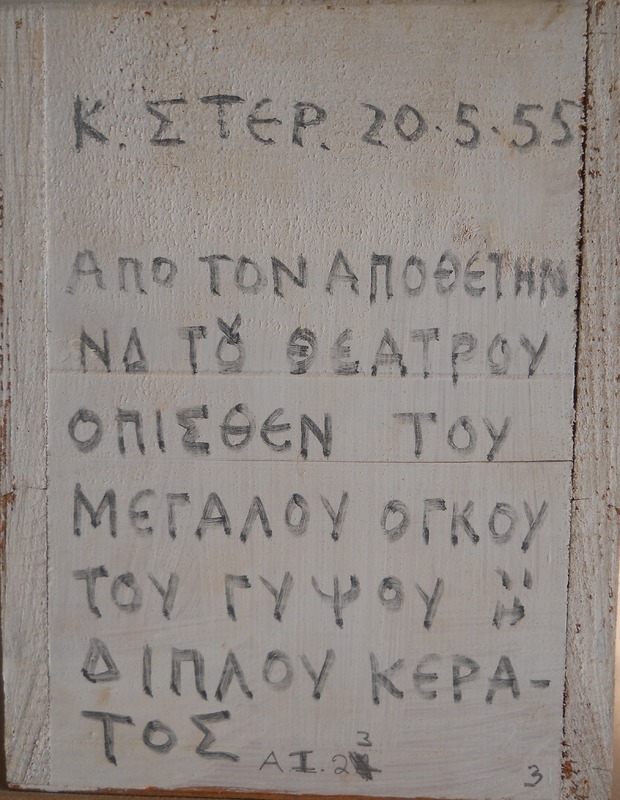 Κ. ΣΤΕΡ. 20.5.55
ΑΠΟ ΤΟΝ ΑΠΟΘΕΤΗΝ
ΝΔ ΤȢ ΘΕΑΤΡΟΥ
ΟΠΙΣΘΕΝ ΤΟΥ
ΜΕΓΑΛΟΥ ΟΓΚΟΥ
ΤΟΥ ΓΥΨΟΥ
ΔΙΠΛΟΥ ΚΕΡΑ-
ΤΟΣ
3
ΑΙ.2
3